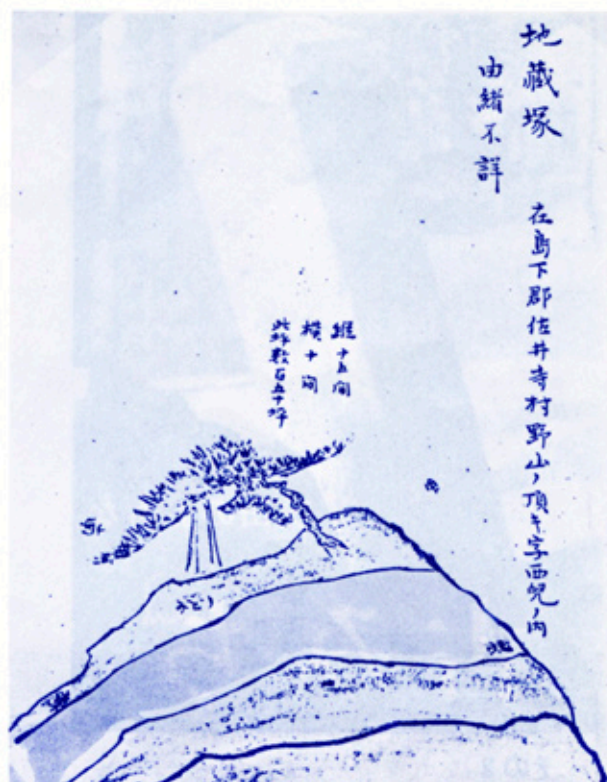 地藏塚
在島下郡佐井寺村野山ノ頂キ字西ノ内
由緒不詳
縦十五間
横十間
此坪数百五十坪